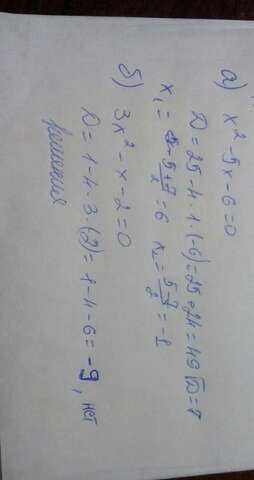 а) x² - 5x - 6 = 0
D = 25 - 4 · 1 · (-6) = 25 + 24 = 49 √D = 7
x₁ = 5+7/2 = 6 x₂ = 5-7/2 = -1
б) 3x² - x - 2 = 0
D = 1 - 4 · 3 · (2) = 1 - 4 - 6 = -9, нет
решения